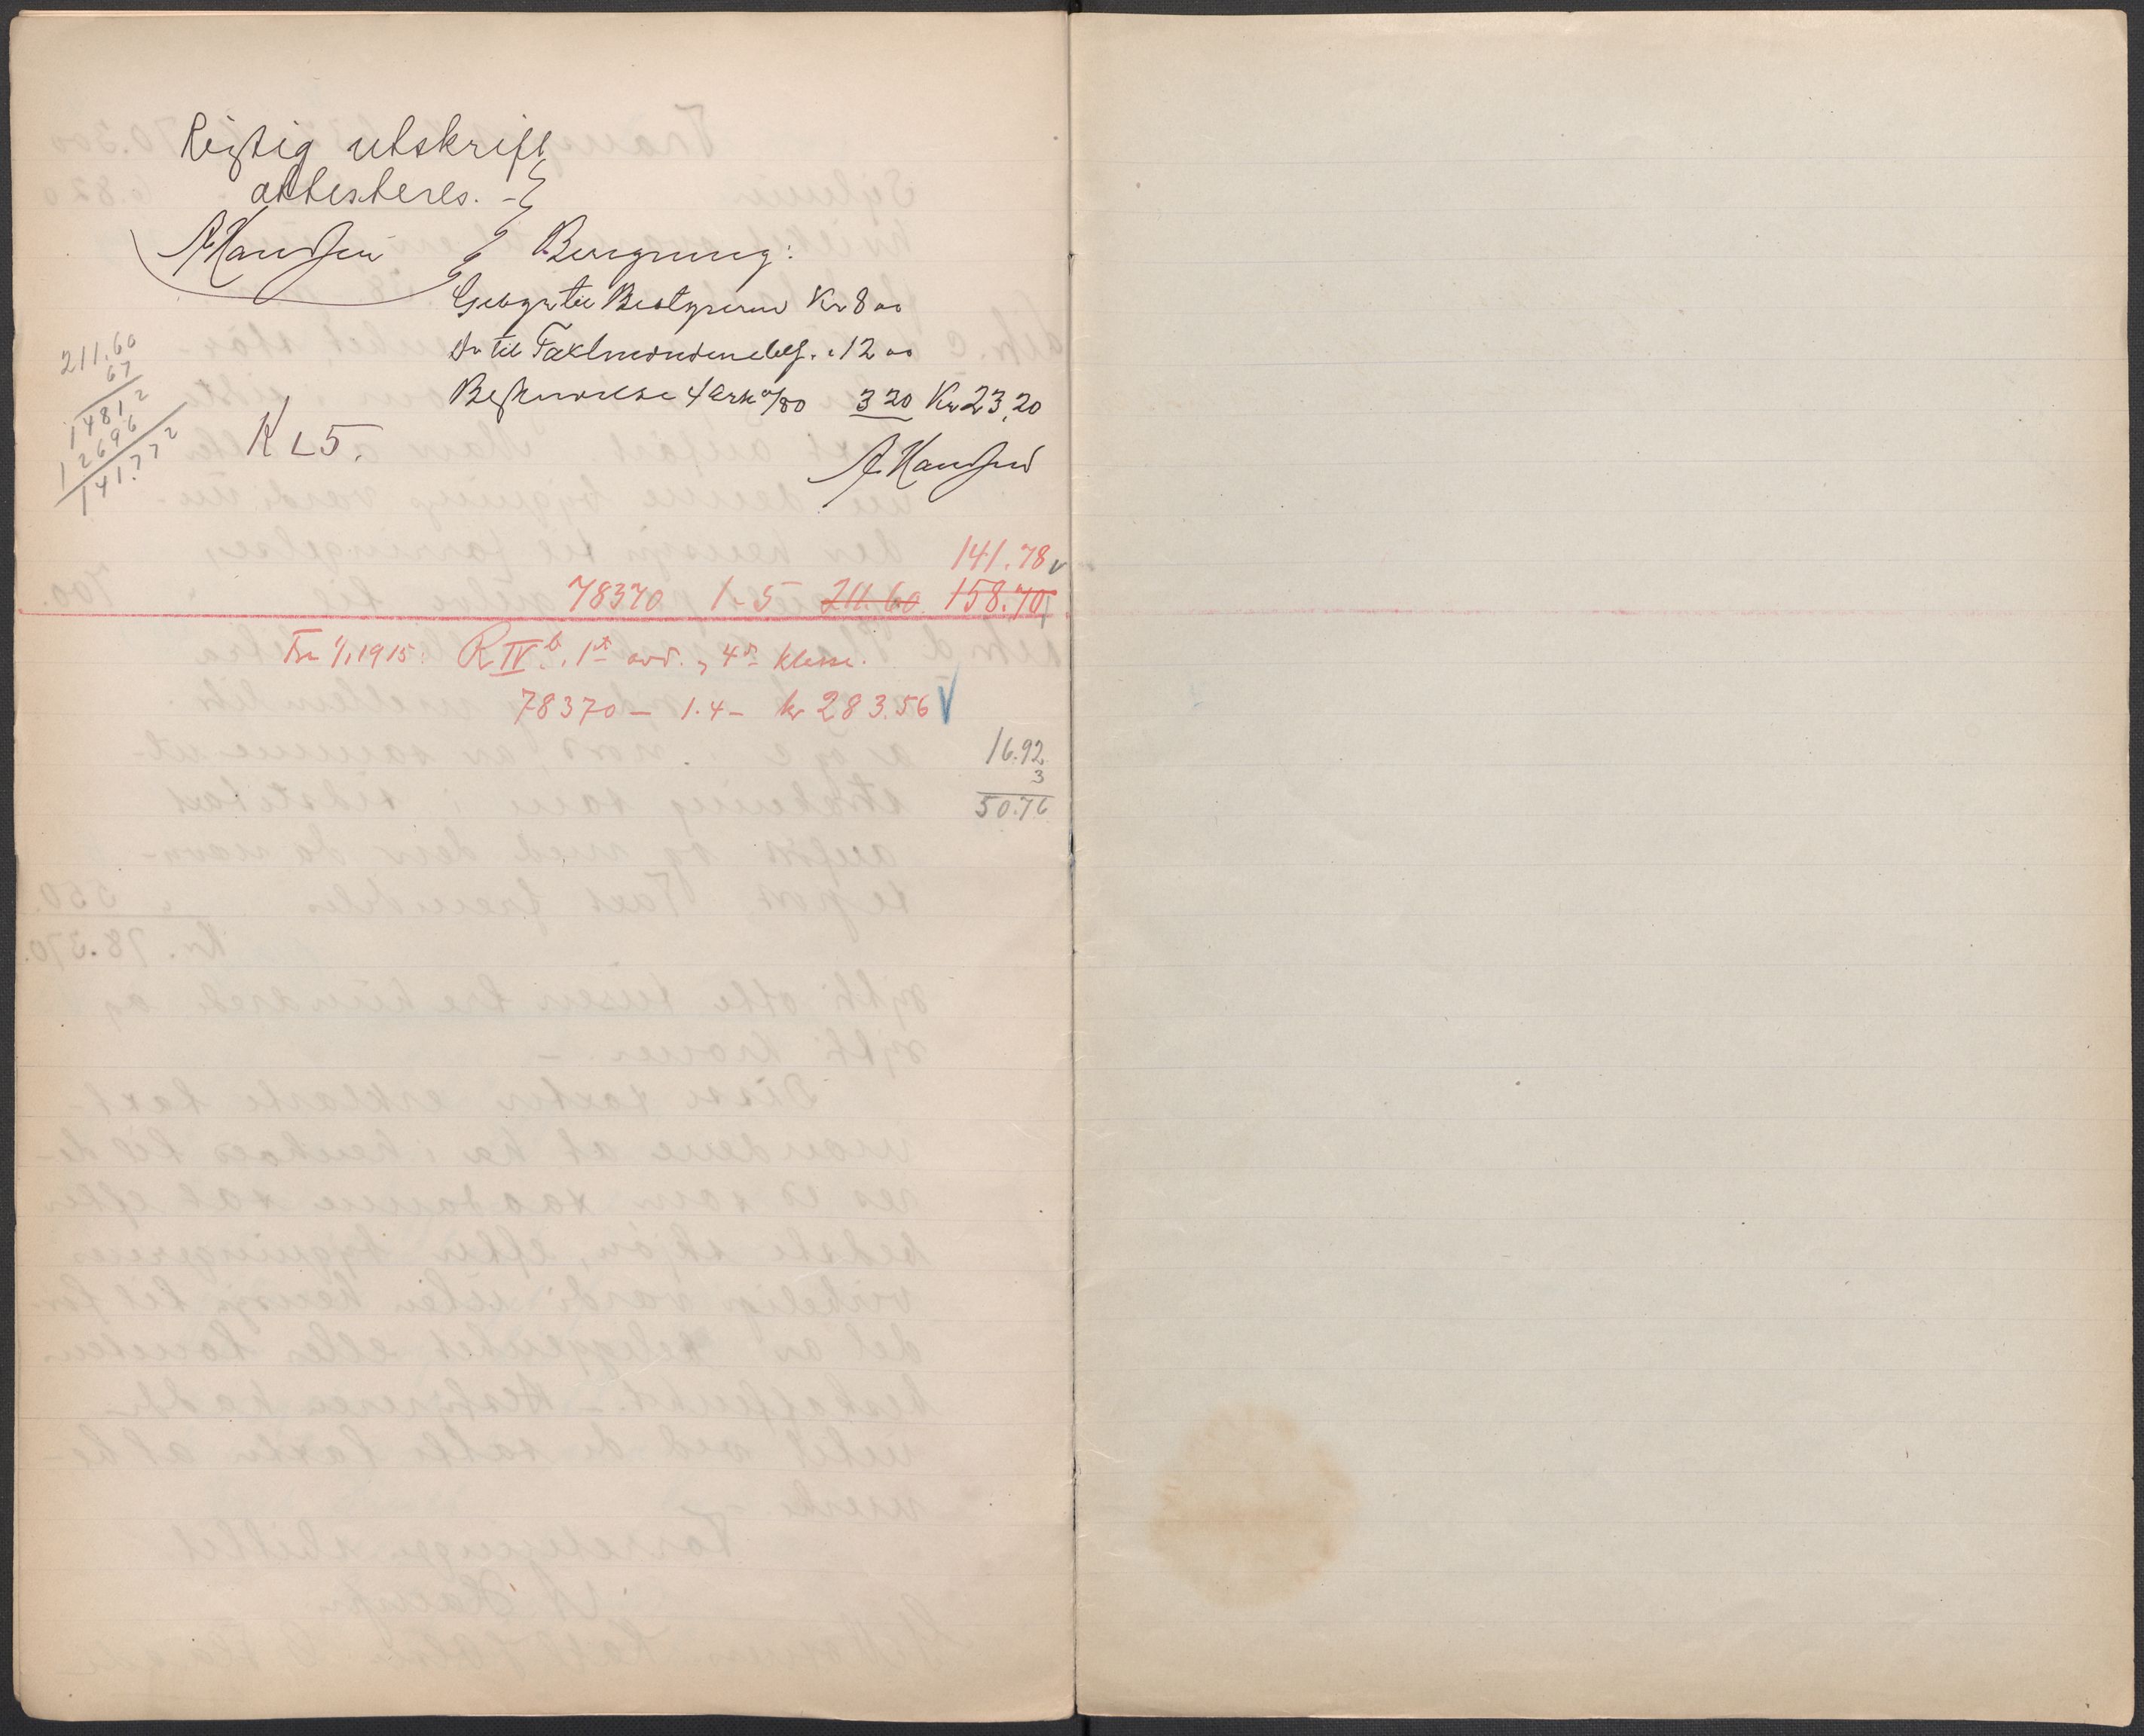 Rigtig utskrift
attesteres. -
A Hansen
Beregning:
Gebyr til Bestyreren Kr 8 00
Do til Taxtmændene tills. " 12 00
Beskrivelse 4 ark a/80 3 20 Kr 23,20
A. Hansen
211.60
67
1481 2
12696
141.77 2
K L 5.
141.78
78370 1-5 211.60 158.70
Fra 1/1 1915: R IV b. 1ste avd., 4de klasse.
78370 — 1.4 — kr 283.56
16.92
3
50.76